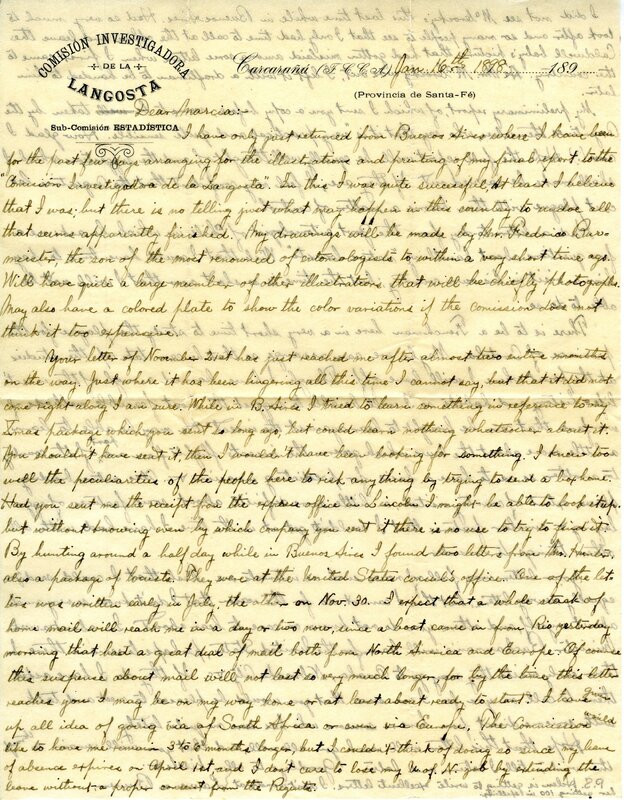 COMISIÓN INVESTIGADORA
DE LA
LANGOSTA
Sub-Comisión ESTADÍSTICA
Carcarañá (F. C. C. A.) Jan. 16th 1898 189
(Provincia de Santa-Fé)
Dear Marcia:-
I have only just returned from Buenos Aires where I have been
for the past few days arranging for the illustrations and printing of my final report to the
"Comision Investigadora de la Langosta". In this I was quite sucessful, at least I believe
that I was; but there is no telling just what may happen in this country to undoe all
that seems apparently finished. My drawings will be made by Mr. Bur-
meister, the son of the most renouned of entomologists to within a very short time ago.
Will have quite a large number of other illustrations that will be chiefly photographs.
May also have a colored plate to show the color variations if the comission does not
think it too expensive.
Your letter of November 21st has just reached me after almost two entire months
on the way. Just where it has been lingering all this time I cannot say, but that it did not
come right along I am sure. While in B. Aires I tried to learn something in reference to my
Xmas package which you sent so long ago, but could learn nothing whatsoever about it.
You shouldn't have sent it, then I wouldn't have been looking for something. I knew too
well the peculiarities of the people here to risk anything by trying to send a box home.
Had you sent me the receipt from the express office in Lincoln I might be able to look it up,
but without knowing even by which company you sent it there is no use to try to find it.
By hunting around a half day while in Buenos Aires I found two letters from Mrs.
also a package of locusts. They were at the United States consul's office. One of the let-
ters was written early in July, the other on Nov. 30. I expect that a whole stack of
home mail will reach me in a day or two now, since a boat came in from Rio yesterday
morning that had a great deal of mail both from North America and Europe. Of course
this suspense about mail will not last so very much longer, for by the time this letter
reaches you I may be on my way home or at least about ready to start. I have given
up all idea of going via of South Africa or even via Europe. The Commission would
like to have me remain 3 to 6 months longer, but I couldn't think of doing so since my leave
of absence expires on April 1st, and I don't care to lose my U. of N. job by extending the
leave without a proper consent from the Regents.